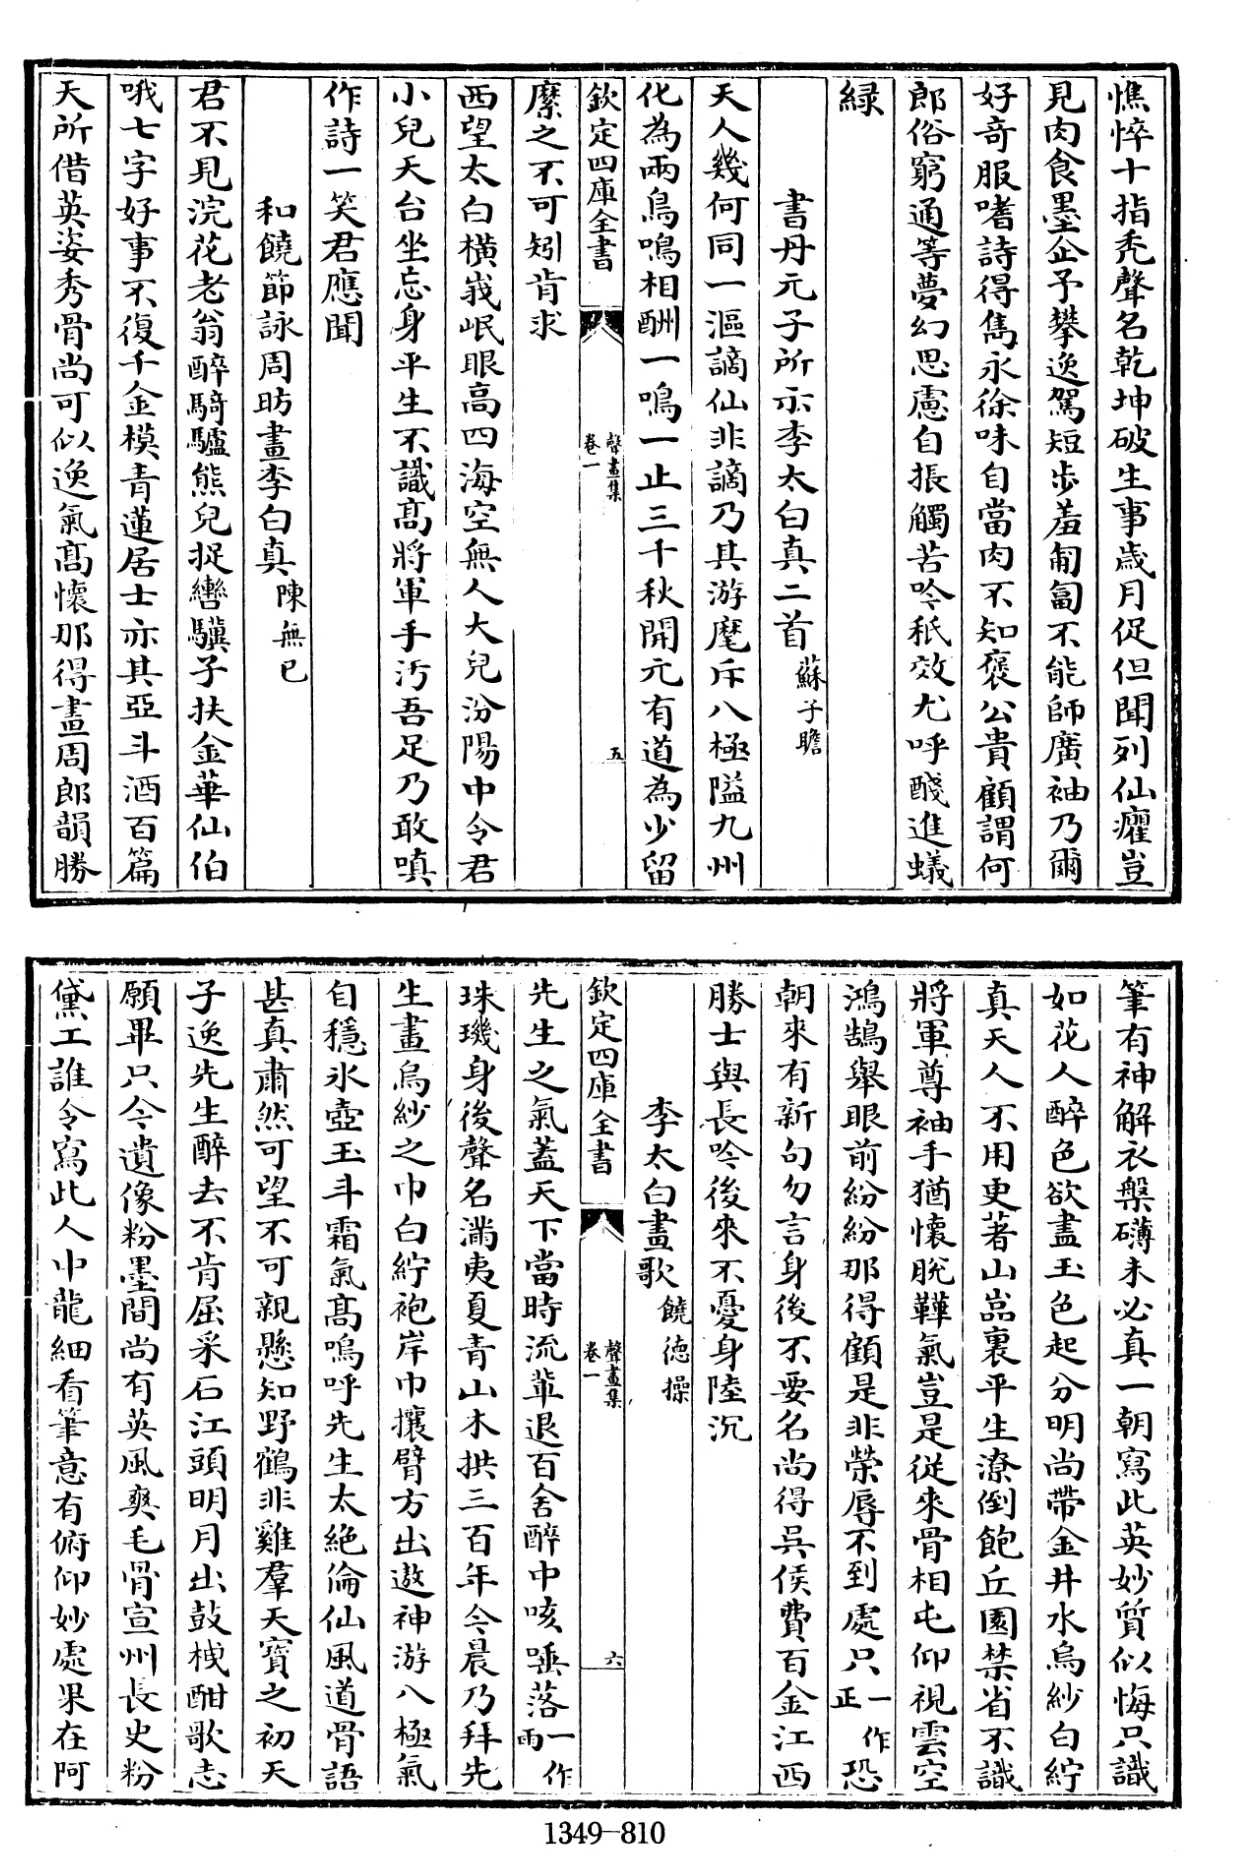 憔悴十指秃聲名乾坤破生事歳月促但聞列仙癯豈
見肉食墨企予攀逸駕短步羞匍匐不能師廣袖乃爾
好奇服嗜詩得雋永徐味自當肉不知褒公貴顧謂何
郎俗窮通等夢幻思慮自振觸苦吟秖效尤呼醆進蟻
緑
書丹元子所示李太白真二首蘇子瞻
天人幾何同一漚謫仙非謫乃其游麾斥八極隘九州
化為兩鳥鳴相酬一鳴一止三千秋開元有道為少留
欽定四庫全書
聲畫集
卷一
五
縻之不可矧肯求
西望太白橫峩岷眼高四海空無人大兒汾陽中令君
小兒天台坐忘身平生不識髙將軍手汚吾足乃敢嗔
作詩一笑君應聞
和饒節詠周昉畫李白真陳無已
君不見浣花老翁醉騎驢熊兒捉轡驥子扶金華仙伯
哦七字好事不復千金模青蓮居士亦其亞斗酒百篇
天所借英姿秀骨尚可似逸氣髙懷那得畫周郎韻勝
筆有神解衣槃礴未必真一朝寫此英妙質似悔只識
如花人醉色欲盡玉色起分明尚帶金井水烏紗白紵
真天人不用更著山嵓裏平生潦倒飽丘園禁省不識
將軍尊袖手猶懷脫鞾氣豈是從來骨相屯仰視雲空
鴻鵠舉眼前紛紛那得顧是非榮辱不到處只一作正恐
朝來有新句勿言身後不要名尚得吳侯費百金江西
勝士與長吟後來不憂身陸沉
李太白畫歌饒德操
欽定四庫全書
聲畫集
卷一
六
先生之氣蓋天下當時流輩退百舍醉中咳唾落一作雨
珠璣身後聲名滿夷夏青山木拱三百年今晨乃拜先
生畫烏紗之巾白紵袍岸巾攘臂方出遨神游八極氣
自穩氷壺玉斗霜氣髙嗚呼先生太絶倫仙風道骨語
甚真肅然可望不可親懸知野鶴非雞羣天寳之初天
子逸先生醉去不肯屈采石江頭明月出鼓枻酣歌志
願畢只今遺像粉墨間尚有英風爽毛骨宣州長史粉
黛工誰令寫此人中龍細看筆意有俯仰妙處果在阿
1349-810